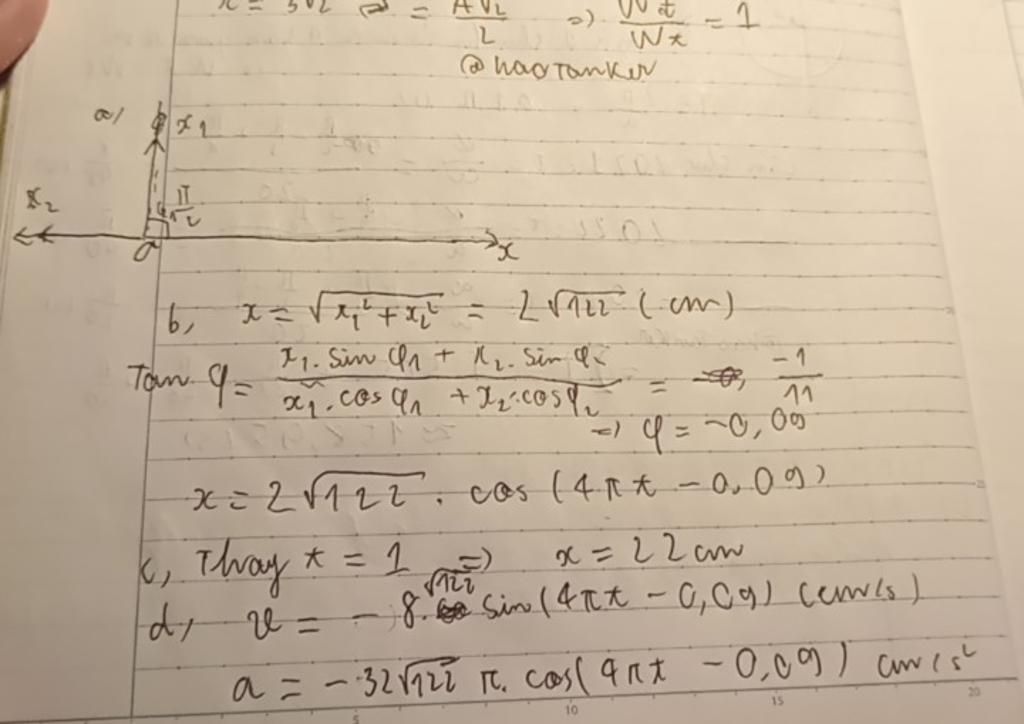 = \frac{A\sqrt{2}}{2} => \frac{Wđ}{Wt} = 1
@haotanker
a/ x1
x2 \frac{π}{2}
O x
b, x = \sqrt{x_1^2 + x_2^2} = 2\sqrt{122} (cm)
Tan φ = \frac{x_1 . sin φ_1 + x_2 . sin φ_2}{x_1 . cos φ_1 + x_2 . cos φ_2} = \frac{-1}{11}
=> φ = -0,09
x = 2\sqrt{122} . cos (4πt - 0,09)
c, Thay t = 1 => x = 22 cm
d, v = - 8.\sqrt{122} sin (4πt - 0,09) (cm/s)
a = -32\sqrt{122} π. cos(4πt - 0,09) cm/s²
5 10 15 20